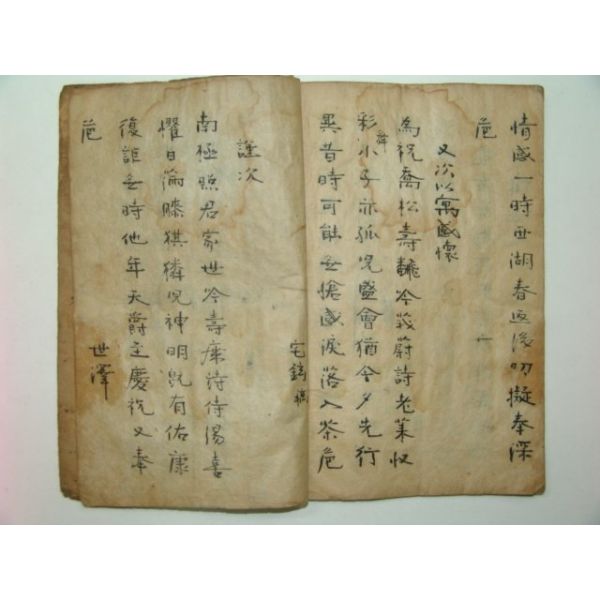 情感一時西湖春返後叨擬奉深
巵
又次以寓感懷
為祝喬松壽翻吟莪蔚詩老萊収
彩舞小子亦孤児盛會猶今夕先行
異昔時可能無愴感淚落入茶巵
宅鎬稿
謹次
南極照君家世吟壽康詩侍湯喜
懼日児神明既有佑康
復詎無時他年天爵至慶祝又奉
巵
世澤